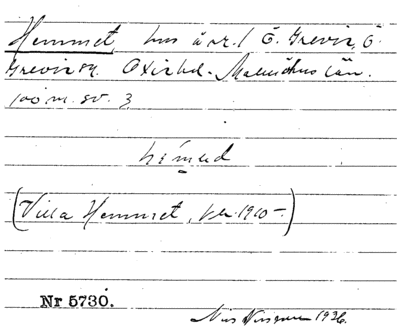 Hemmet, hus å nr. 1 Ö. Grevie, Ö.
Grevie sn. Oxie hd. Malmöhus län.
100 m. sv. 3
(Villa Hemmet, 1910-)
Nr 5730.
1936.